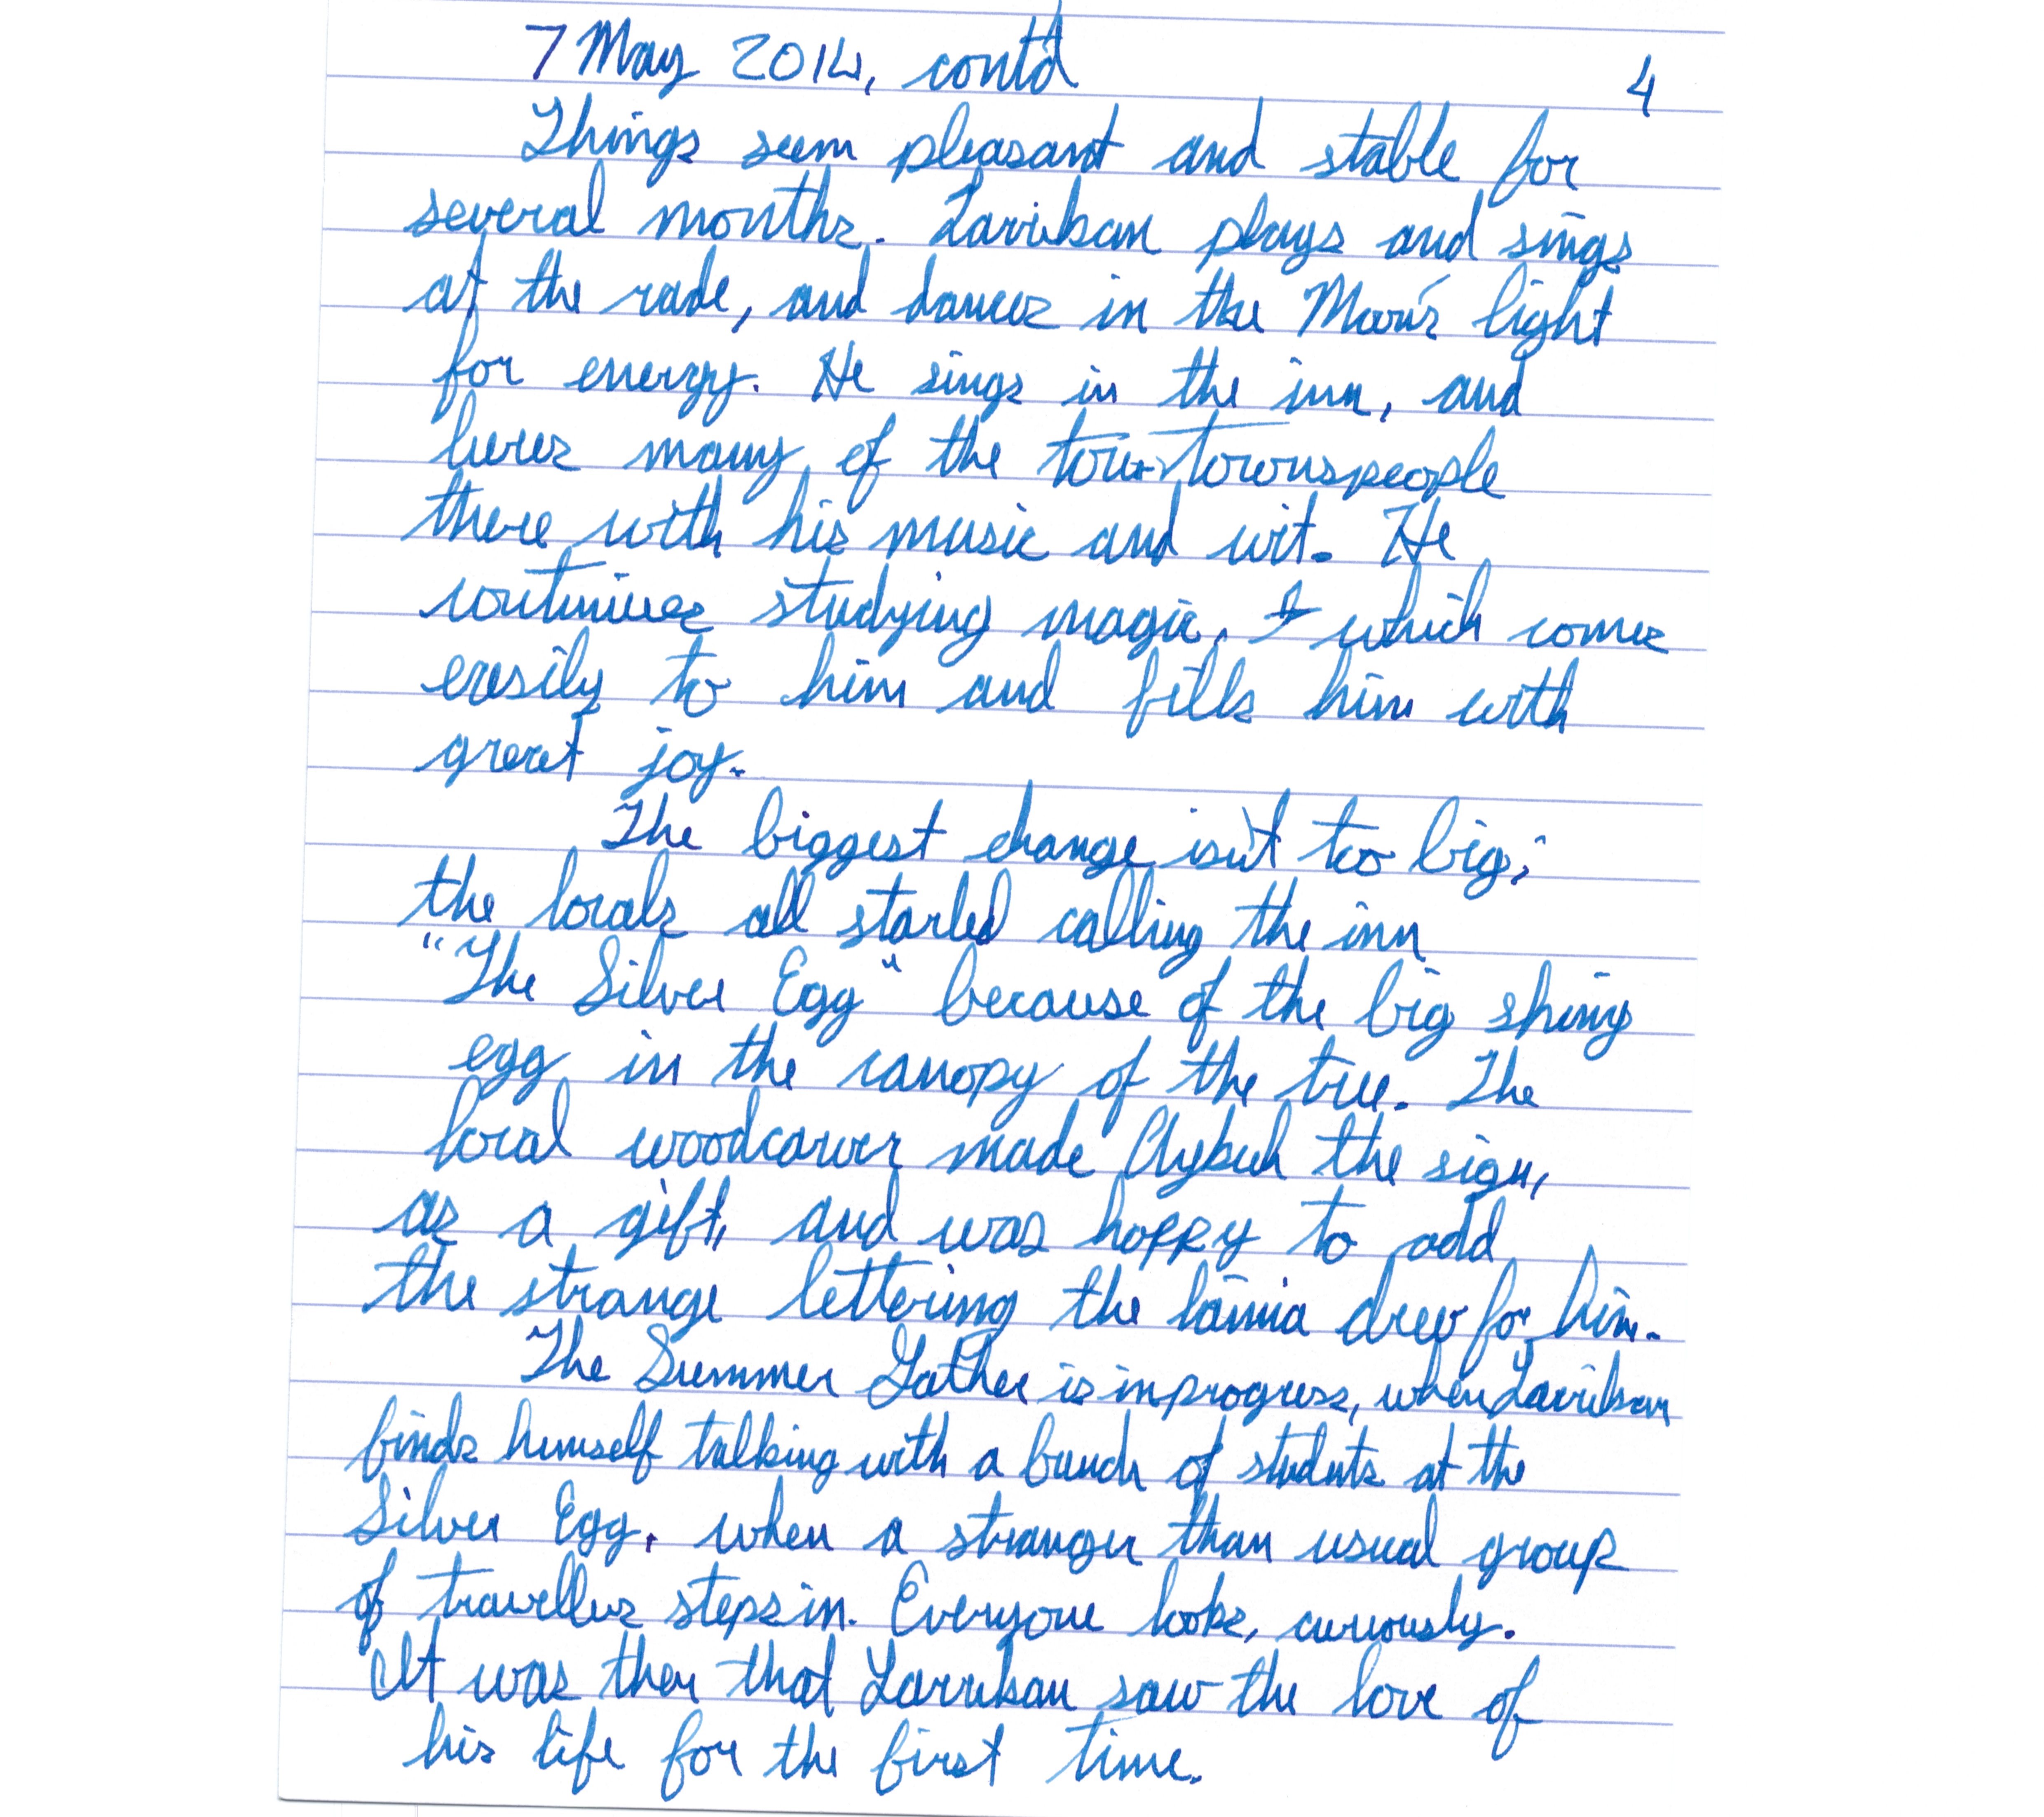 7 May 2014, cont'd 4
Things seem pleasant and stable for
several months. Larrikan plays and sings
at the rade, and dances in the Moon's light
for energy. He sings in the inn, and
lures many of the town townspeople
there with his music and wit. He
continues studying magic, which comes
easily to him and fills him with
great joy.
The biggest change isn't too big;
the locals all started calling the inn
"The Silver Egg" because of the big shiny
egg in the canopy of the tree. The
local woodcarver made the sign,
as a gift, and was happy to add
the strange lettering the lamia drew for him.
The Summer Gather is in progress, when Larrikan
finds himself talking with a bunch of students at the
Silver Egg, when a stranger than usual group
of travellers steps in. Everyone looks, curiously.
It was then that Larrikan saw the love of
his life for the first time.